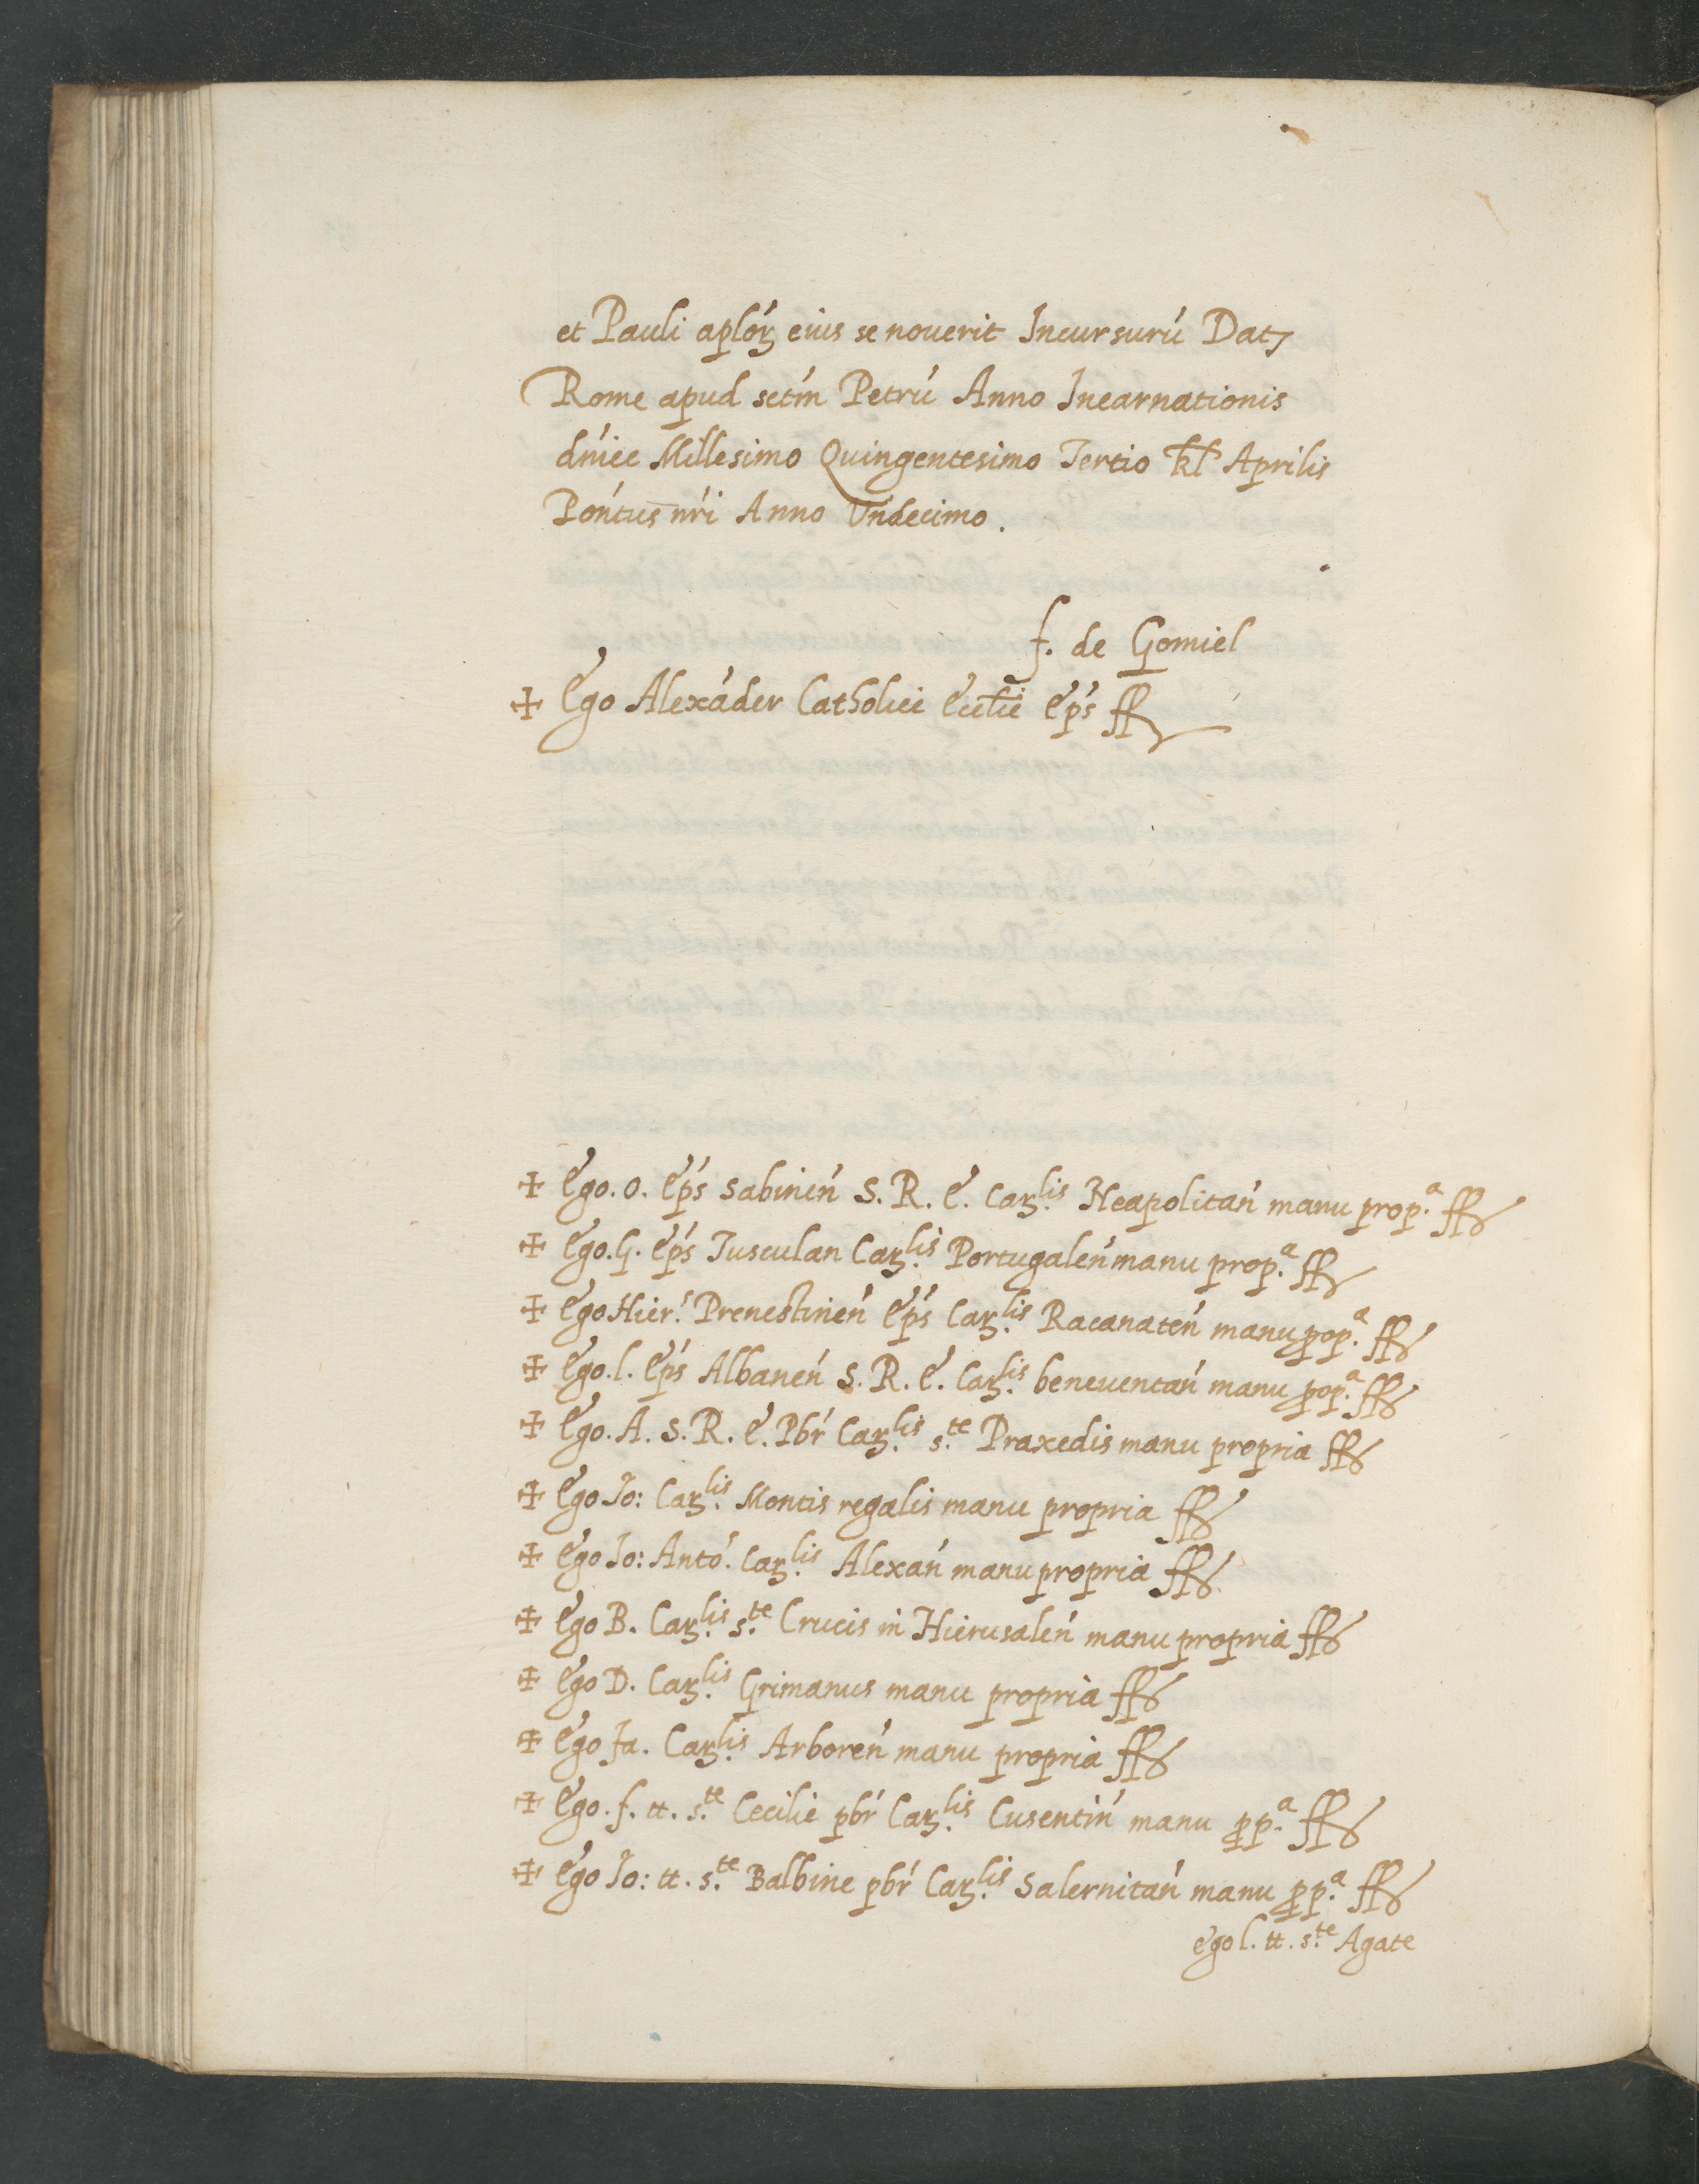 et Pauli aplóꝝ eius se nouerit Incursurú Datꝫ
Rome apud sctḿ Petrú Anno Incarnationis
dńice Millesimo Quingentesimo Tertio kl̃ Aprilis
Pońtus nŕi Anno Vndecimo.
f. de Gomiel
✠ Ego Alexáder Catholice Eccl̃ie Epś ſſ
✠ Ego. O. Epś Sabineń S. R. E. Carꝫ.lis Neapolitań manu prop.a ſſ
✠ Ego. G. Epś Tusculan Carꝫ.lis Portugaleń manu prop.a ſſ
✠ Ego Hier.s Prenestineń Epś Carꝫ.lis Racanateń manu ꝓp.a ſſ
✠ Ego. l. Epś Albaneń S. R. E. Carꝫ.lis beneuentań manu ꝓp.a ſſ
✠ Ego. A. S. R. E. Pbŕ Carꝫ.lis s.te Praxedis manu propria ſſ
✠ Ego Jo: Carꝫ.lis Montis regalis manu propria ſſ
✠ Ego Jo: Antó. Carꝫ.lis Alexań manu propria ſſ
✠ Ego B. Carꝫ.lis s.te Crucis in Hierusaleń manu propria ſſ
✠ Ego D. Carꝫ.lis Grimanus manu propria ſſ
✠ Ego Ja. Carꝫ.lis Arboreń manu propria ſſ
✠ Ego. f. tt. s.te Cecilie pbŕ Carꝫ.lis Cusentiń manu ꝓp.a ſſ
✠ Ego Jo: tt. s.te Balbine pbŕ Carꝫ.lis Salernitań manu ꝓp.a ſſ
ego l. tt. s.te Agate